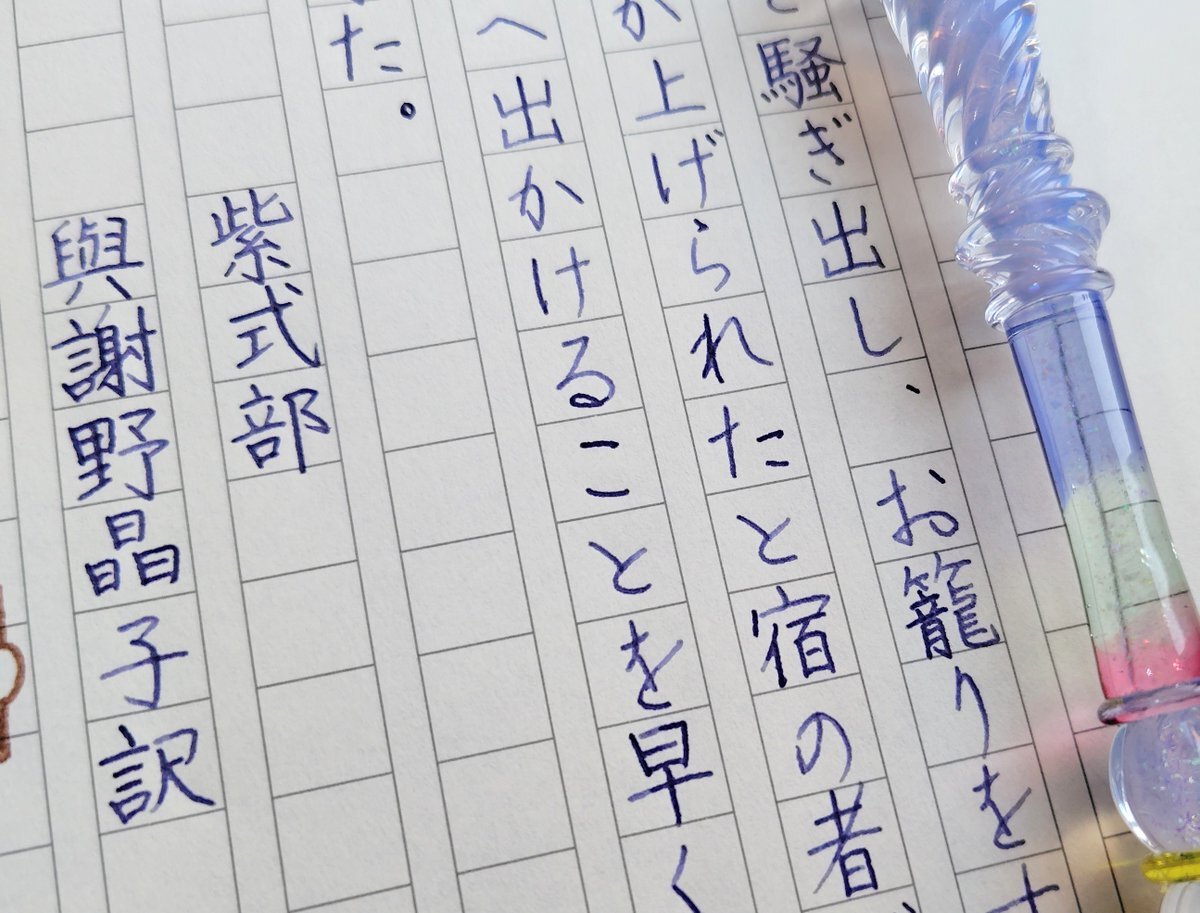 騒ぎ出し、お籠りを
が上げられたと宿の者
へ出かけることを早く
た。
紫式部
與謝野晶子訳